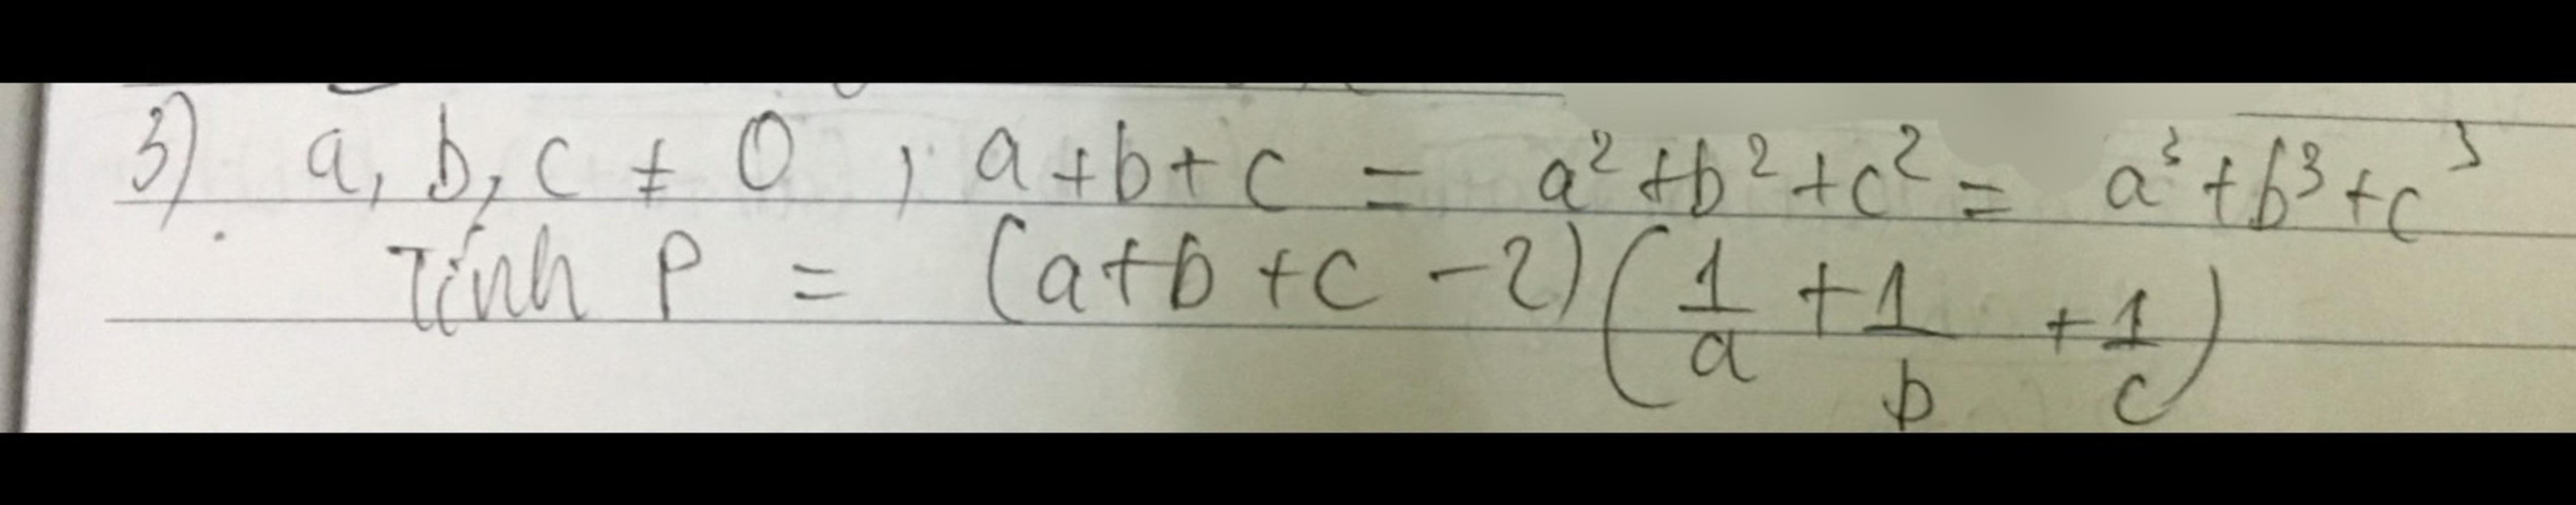 3) a, b, c ≠ 0 , a+b+c = a² +b² +c² = a³ +b³ +c³
Tính P = (a+b+c -2)(1/a + 1/b + 1/c)